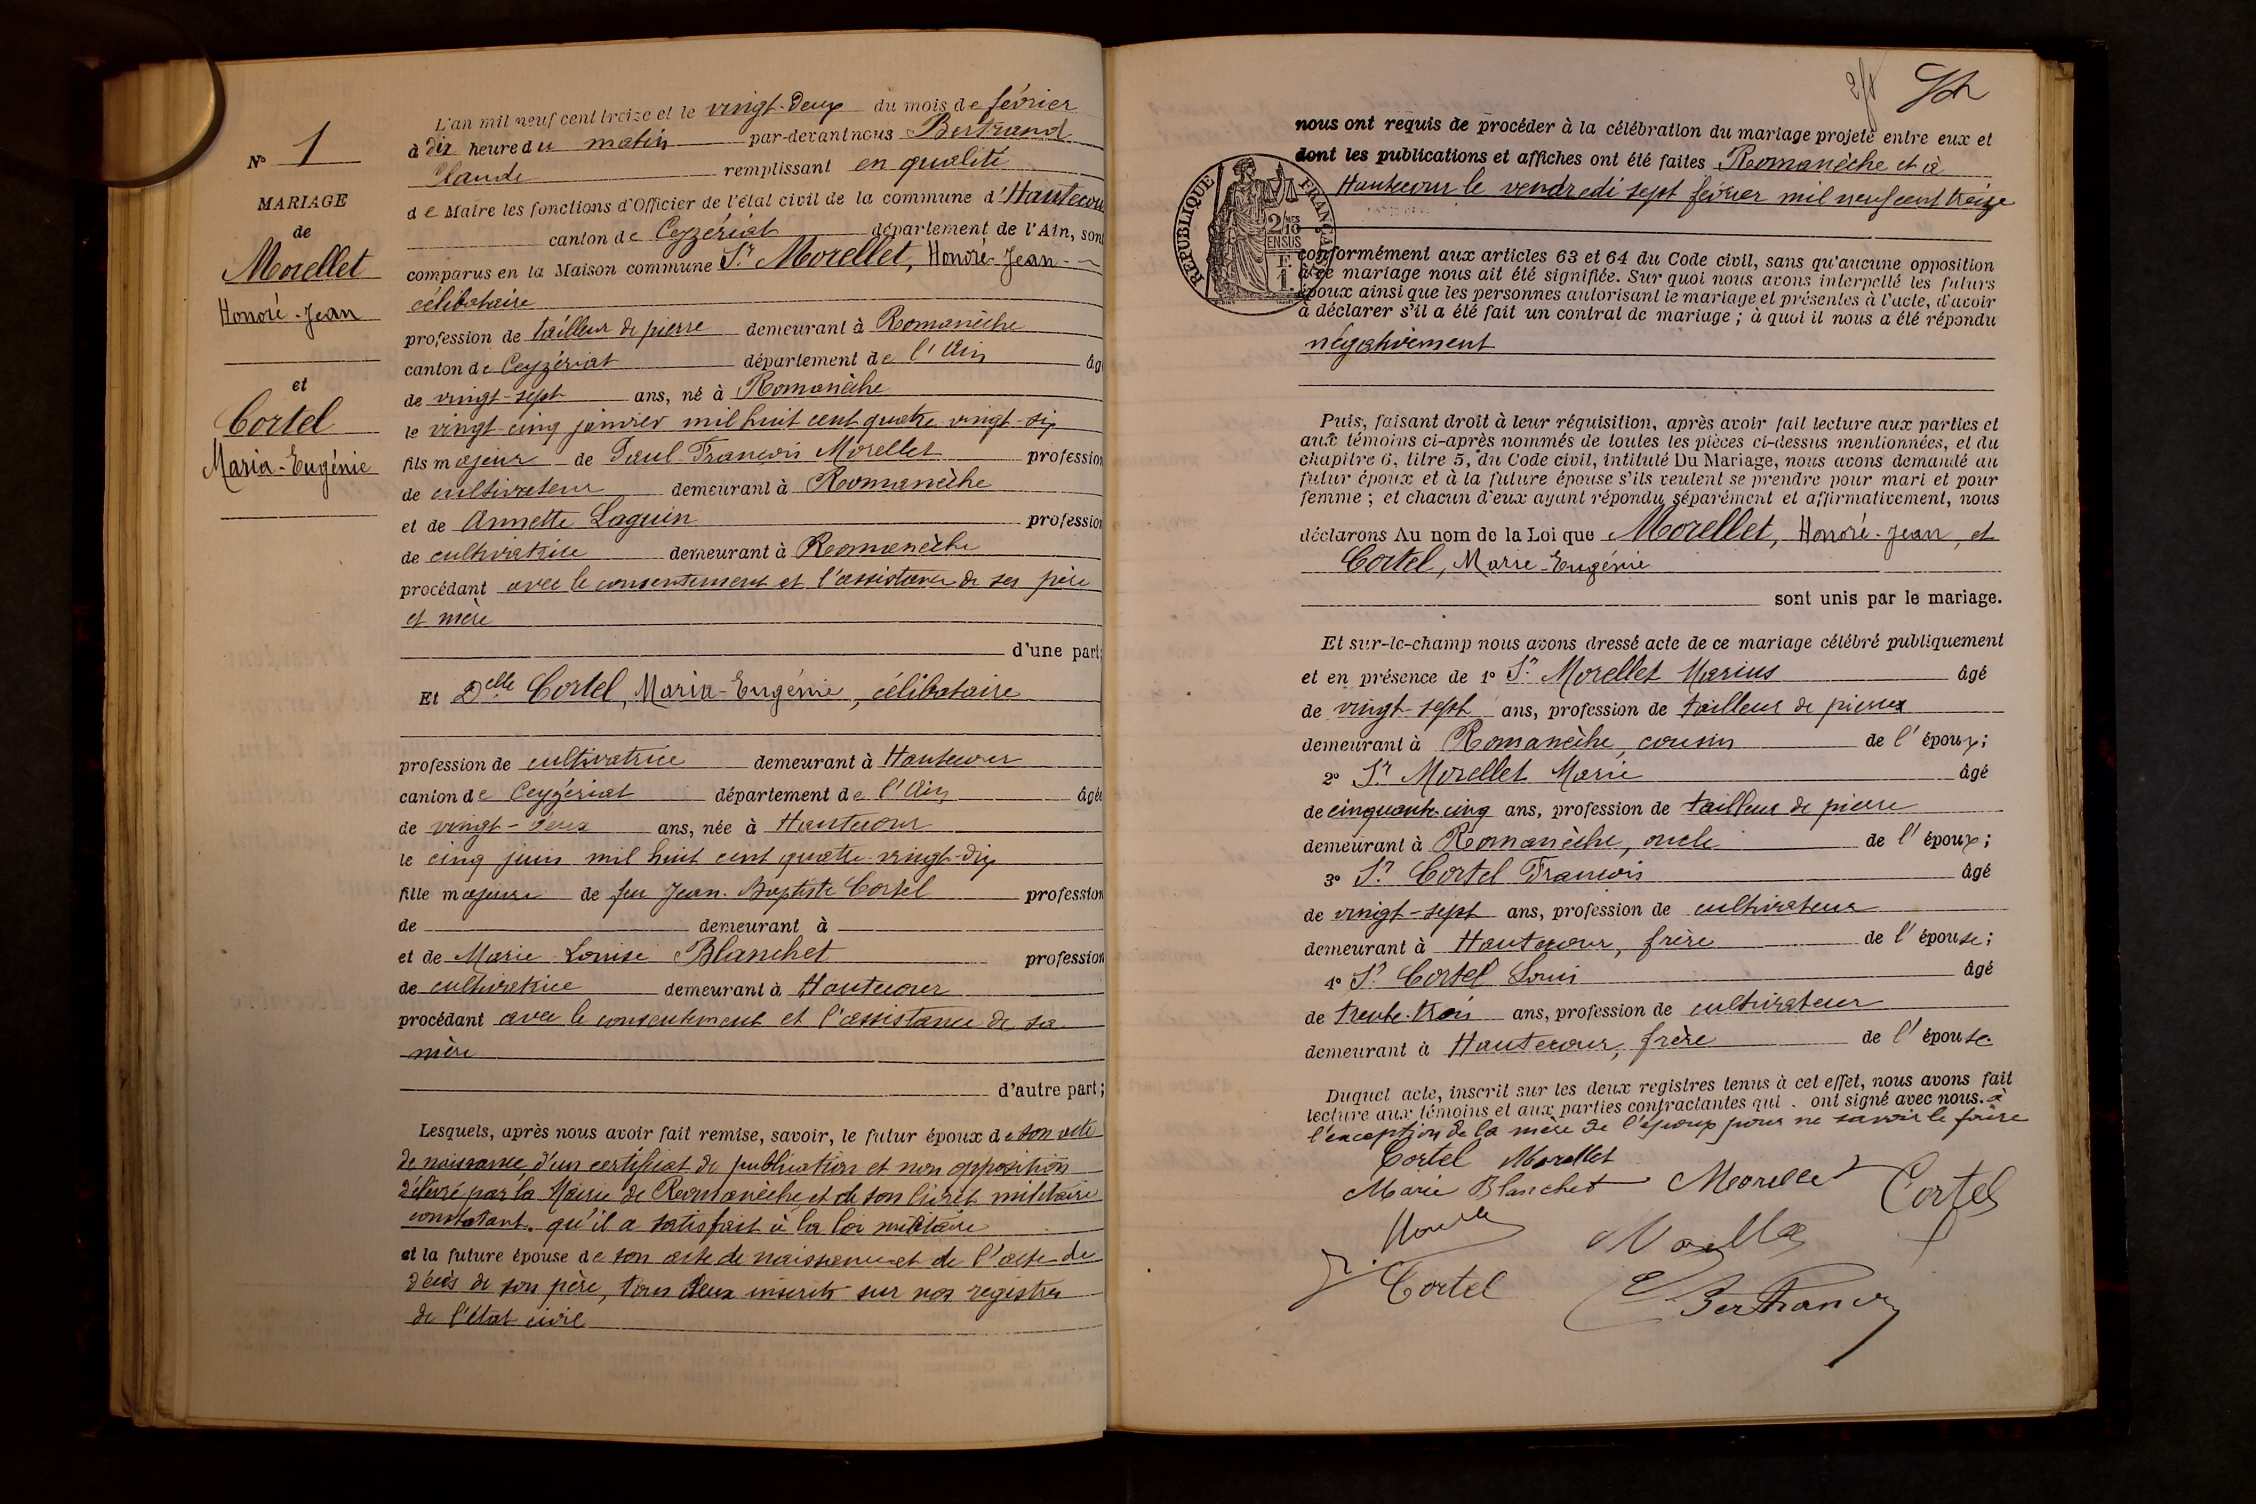 N° 1
MARIAGE
de
Morellet
Honoré-Jean
et
Cortel
Maria-Eugénie
L'an mil neuf cent treize et le vingt-deux du mois de février
à dix heure du matin par-devant nous Bertrand
Claude remplissant en qualité
de Maire les fonctions d'Officier de l'état civil de la commune d'Hautecour
canton de Ceyzériat département de l'Ain, sont
comparus en la Maison commune Sr Morellet, Honoré-Jean
célibataire
profession de tailleur de pierre demeurant à Romanèche
canton de Ceyzériat département de l'Ain âgé
de vingt-sept ans, né à Romanèche
le vingt-cinq janvier mil huit cent quatre vingt-six
fils majeur de Paul François Morellet profession
de cultivateur demeurant à Romanèche
et de Annette Laguin profession
de cultivatrice demeurant à Romanèche
procédant avec le consentement et l'assistance de ses père
et mère
d'une part;
Et Delle Cortel, Maria-Eugénie, célibataire
profession de cultivatrice demeurant à Hautecour
canton de Ceyzériat département de l'Ain âgée
de vingt-deux ans, née à Hautecour
le cinq juin mil huit cent quatre-vingt-dix
fille majeure de feu Jean-Baptiste Cortel profession
de demeurant à
et de Marie Louise Blanchet profession
de cultivatrice demeurant à Hautecour
procédant avec le consentement et l'assistance de sa
mère
d'autre part;
Lesquels, après nous avoir fait remise, savoir, le futur époux de son acte
de naissance, d'un certificat de publication et non opposition
délivré par la Mairie de Romanèche et de son livret militaire
constatant qu'il a satisfait à la loi militaire
et la future épouse de son acte de naissance et de l'acte de
décès de son père, tous deux inscrits sur nos registres
de l'état civil
2/8
nous ont requis de procéder à la célébration du mariage projeté entre eux et
dont les publications et affiches ont été faites Romanèche et à
Hautecour le vendredi sept février mil neuf cent treize
RÉPUBLIQUE FRANÇAISE
2/10 MES
EN SUS
F
1.
conformément aux articles 63 et 64 du Code civil, sans qu'aucune opposition
à ce mariage nous ait été signifiée. Sur quoi nous avons interpellé les futurs
époux ainsi que les personnes autorisant le mariage et présentes à l'acte, d'avoir
à déclarer s'il a été fait un contrat de mariage; à quoi il nous a été répondu
négativement
Puis, faisant droit à leur réquisition, après avoir fait lecture aux parties et
aux témoins ci-après nommés de toutes les pièces ci-dessus mentionnées, et du
chapitre 6, titre 5, du Code civil, intitulé Du Mariage, nous avons demandé au
futur époux et à la future épouse s'ils veulent se prendre pour mari et pour
femme; et chacun d'eux ayant répondu séparément et affirmativement, nous
déclarons Au nom de la Loi que Morellet, Honoré-Jean, et
Cortel, Marie-Eugénie
sont unis par le mariage.
Et sur-le-champ nous avons dressé acte de ce mariage célébré publiquement
et en présence de 1° Sr Morellet Marius âgé
de vingt-sept ans, profession de tailleur de pierres
demeurant à Romanèche, cousin de l'époux;
2° Sr Morellet Marie âgé
de cinquante-cinq ans, profession de tailleur de pierre
demeurant à Romanèche, oncle de l'époux;
3° Sr Cortel François âgé
de vingt-sept ans, profession de cultivateur
demeurant à Hautecour, frère de l'épouse;
4° Sr Cortel Louis âgé
de trente-trois ans, profession de cultivateur
demeurant à Hautecour, frère de l'épouse.
Duquel acte, inscrit sur les deux registres tenus à cet effet, nous avons fait
lecture aux témoins et aux parties contractantes qui ont signé avec nous. à
l'exception de la mère de l'époux pour ne savoir le faire
Cortel Morellet
Marie Blanchet Morellet Cortel
Cortel
Bertrand